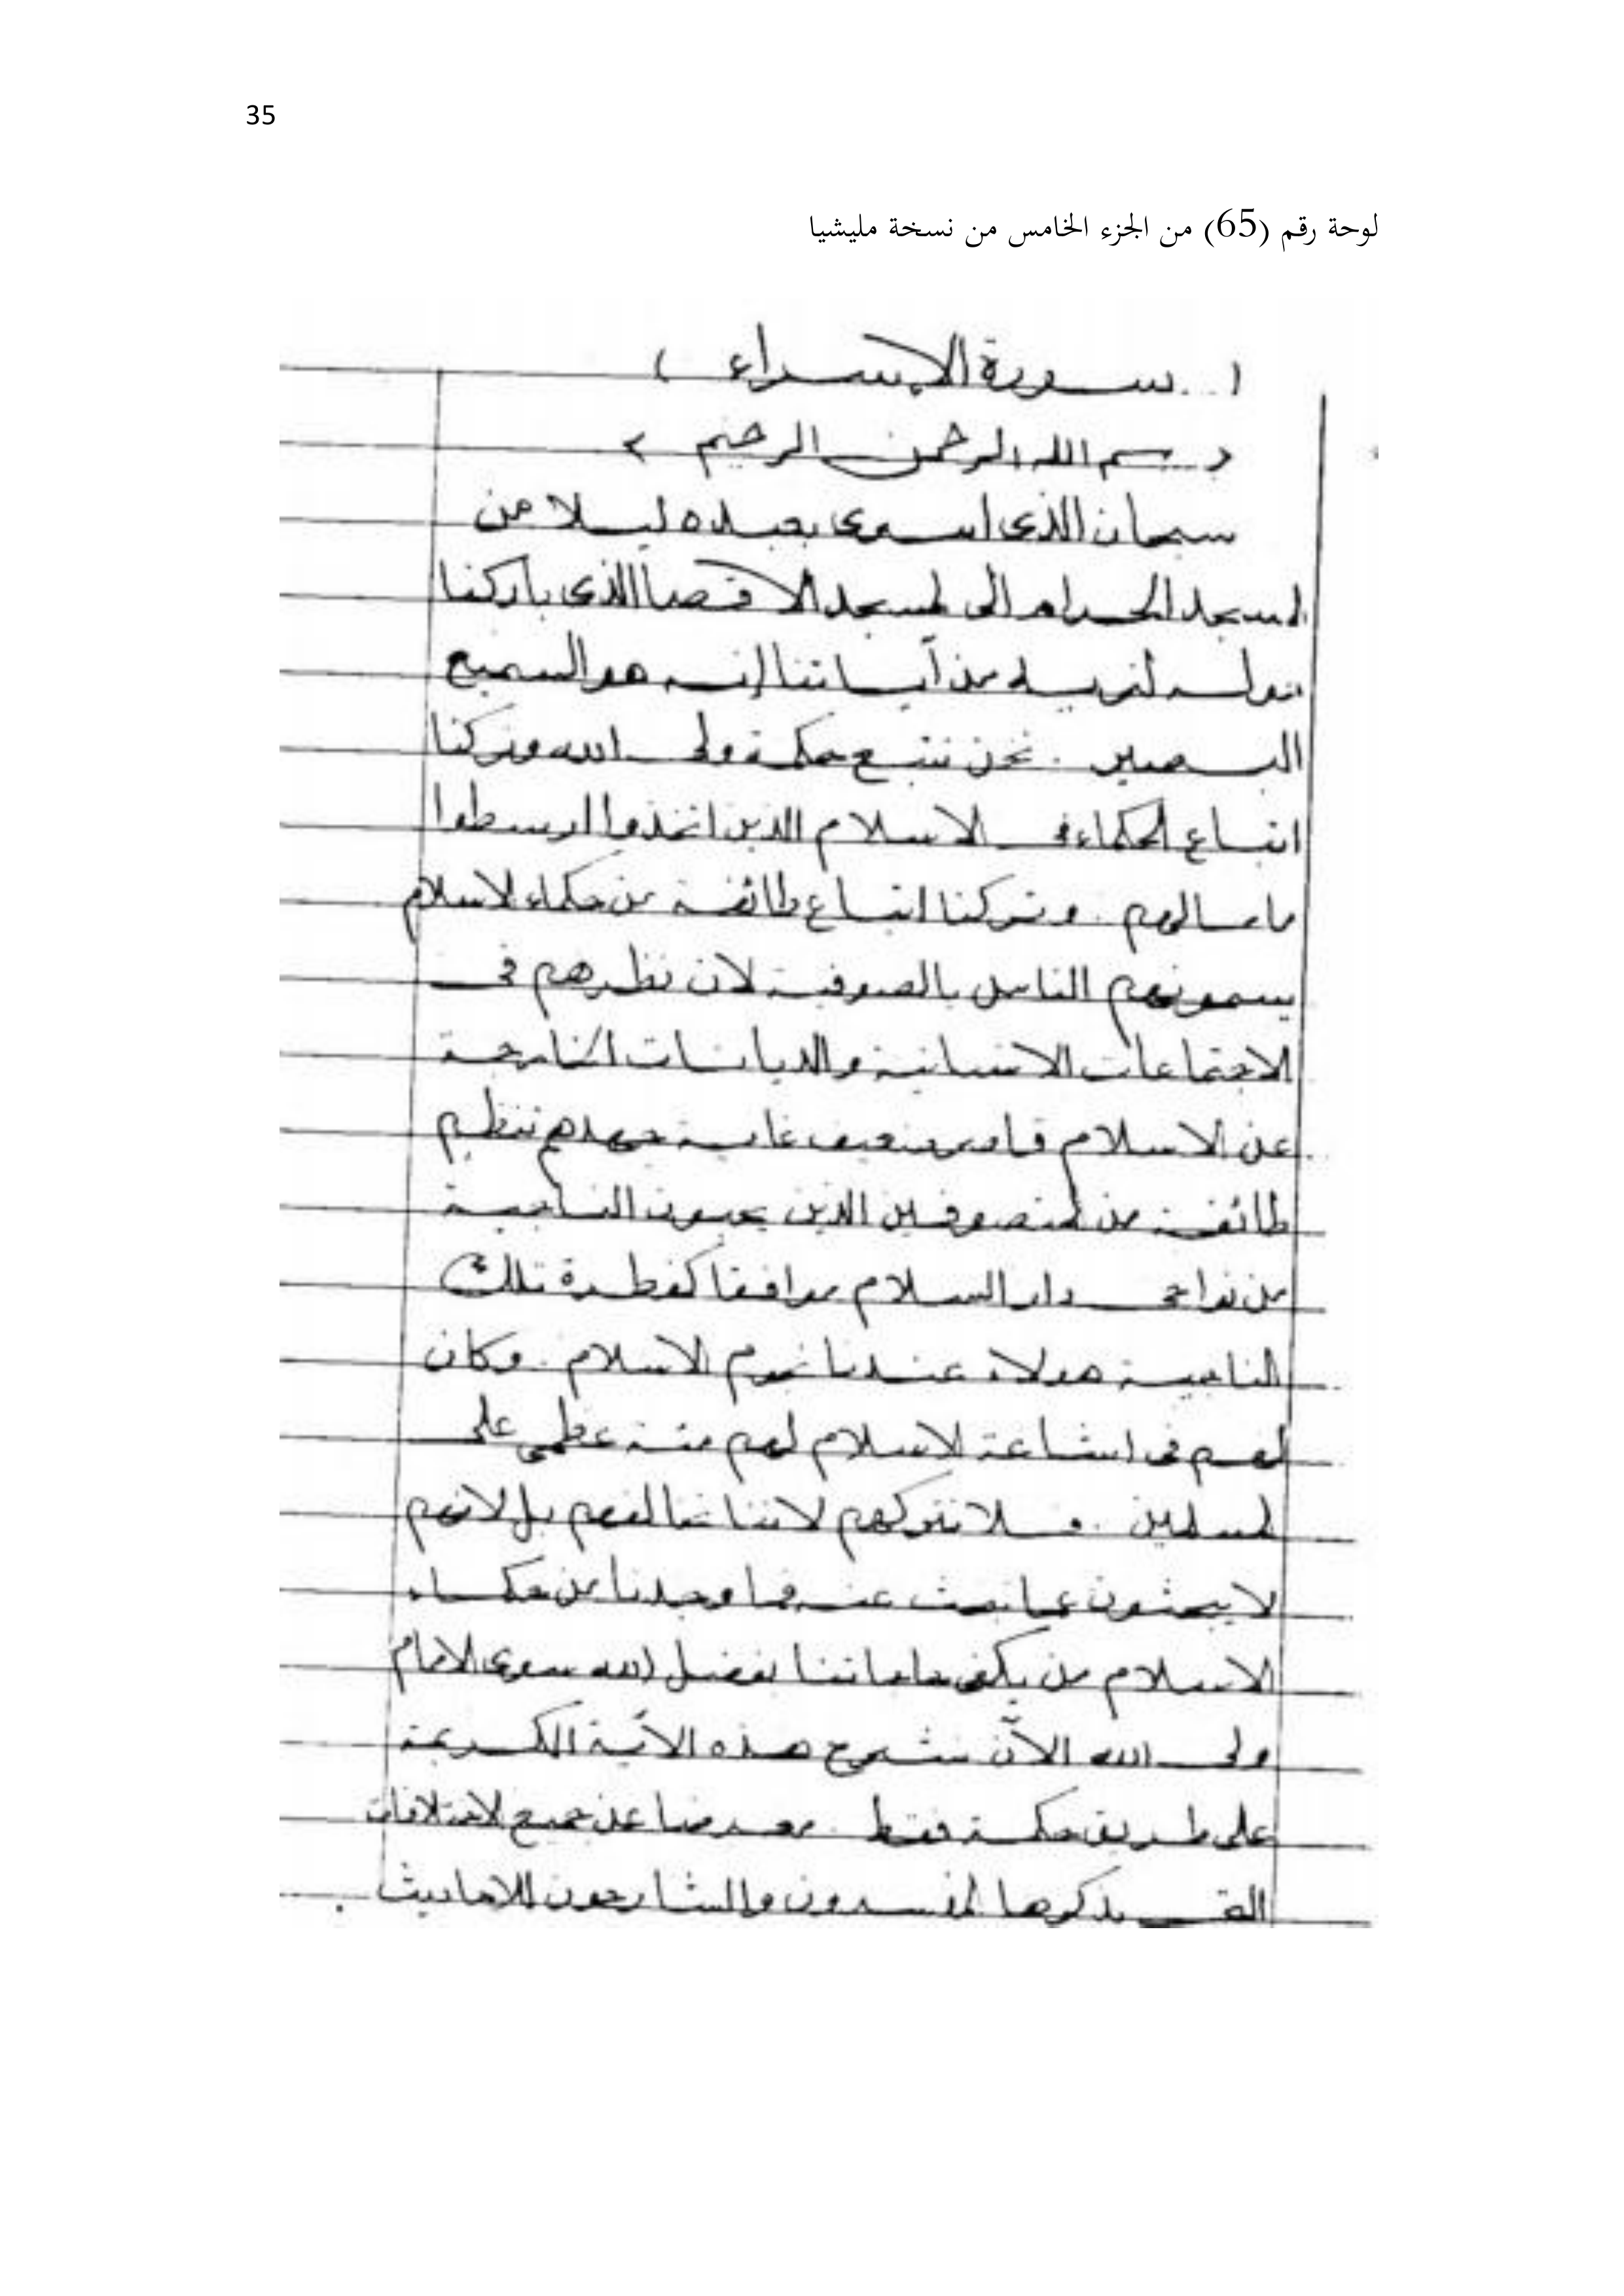 35
لوحة رقم (65) من الجزء الخامس من نسخة مليشيا
( سورة الإسراء )
بسم الله الرحمن الرحيم
سبحان الذى اسرى بعبده ليلا من
المسجد الحرام الى المسجد الاقصا الذى باركنا
حوله لنريه من آياتنا إنه هو السميع
البصير . نحن نتبع حكمة ولى الله وتركنا
اتباع الحكماء فى الاسلام الذين اتخذوا ارسطوا
اما مالهم . وتركنا اتباع طائفة من حكماء الاسلام
يسمونهم الناس بالصوفية لان نظرهم فى
الاجتماعات الانسانية والديانات الخارجة
عن الاسلام قاصر ضعيف غاية جهدهم تنظيم
طائفة من المتصوفين الذين يحبون الناحية
من نواحى دار السلام موافقا كفطرة تلك
الناحية هولاء عندنا نجوم الاسلام . وكان
لهم فى اشاعة الاسلام لهم منة عظمى على
المسلمين . فلا نتركهم لاننا نخالفهم بل لانهم
لا يبحثون عما نبحث عنه فما وجدنا من حكماء
الاسلام من يكفى حاجاتنا بفضل الله سوى الامام
ولى الله الآن نشرح هذه الآية الكريمة
على طريق حكمة فقط معرضا عن جميع الاختلافات
التى يذكرها المفسرون والشارحون للاحاديث